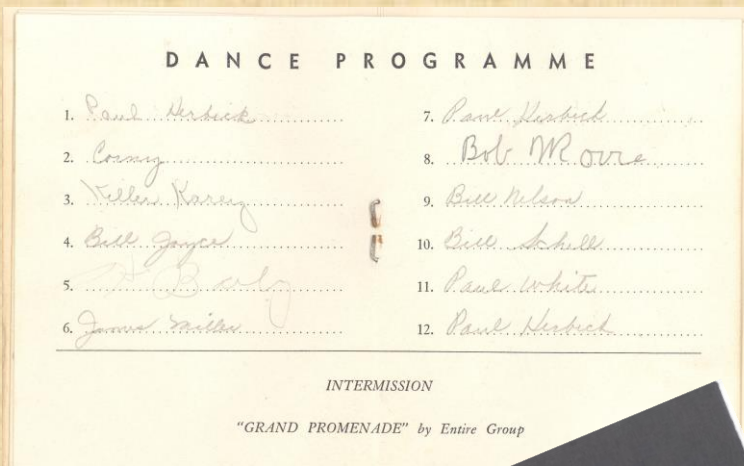 DANCE PROGRAMME
1. Paul Herbick
2. Corney
3. Killer Karey
4. Bill Joyce
5.
6. James Miller
7. Paul Herbick
8. Bob
9. Bill Nelson
10. Bill Schell
11. Paul White
12. Paul Herbick
INTERMISSION
"GRAND PROMENADE" by Entire Group